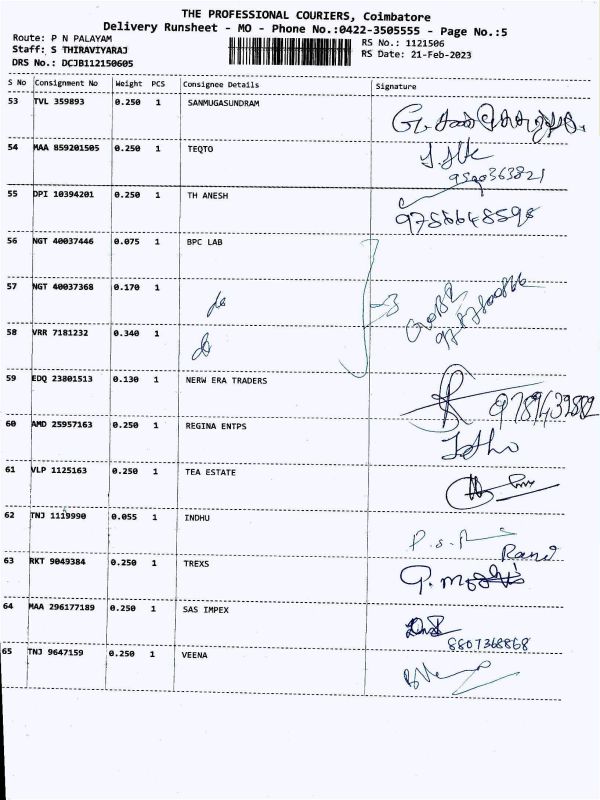 THE PROFESSIONAL COURIERS, Coimbatore
Delivery Runsheet - MO - Phone No.:0422-3505555 - Page No.:5
Route: P N PALAYAM
Staff: S THIRAVIYARAJ
DRS No.: DCJB112150605
RS No.: 1121506
RS Date: 21-Feb-2023
S No Consignment No Weight PCS Consignee Details Signature
53 TVL 359893 0.250 1 SANMUGASUNDRAM
54 MAA 859201505 0.250 1 TEQTO
55 DPI 10394201 0.250 1 TH ANESH
9756648598
56 NGT 40037446 0.075 1 BPC LAB
57 NGT 40037368 0.170 1 do
58 VRR 7181232 0.340 1 do
59 EDQ 23801513 0.130 1 NERW ERA TRADERS
60 AMD 25957163 0.250 1 REGINA ENTPS
61 VLP 1125163 0.250 1 TEA ESTATE
62 TNJ 1119990 0.055 1 INDHU
63 RKT 9049384 0.250 1 TREXS
64 MAA 296177189 0.250 1 SAS IMPEX
8807368868
65 TNJ 9647159 0.250 1 VEENA